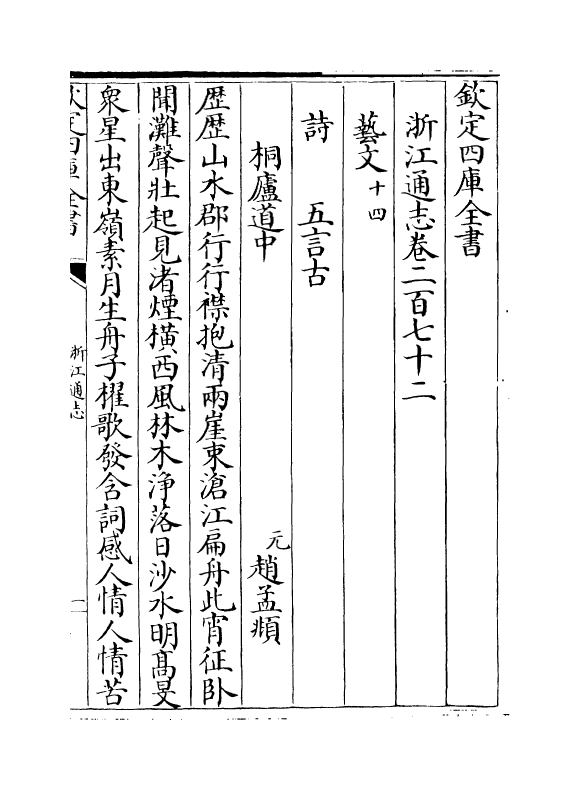 欽定四庫全書
浙江通志卷二百七十二
藝文十四
詩　五言古
桐廬道中　元趙孟頫
歴歴山水郡行行襟抱清兩崖束滄江扁舟此宵征卧
聞灘聲壯起見渚煙橫西風林木淨落日沙水明髙旻
衆星出東嶺素月生舟子櫂歌發含詞感人情人情苦
欽定四庫全書
浙江通志
一